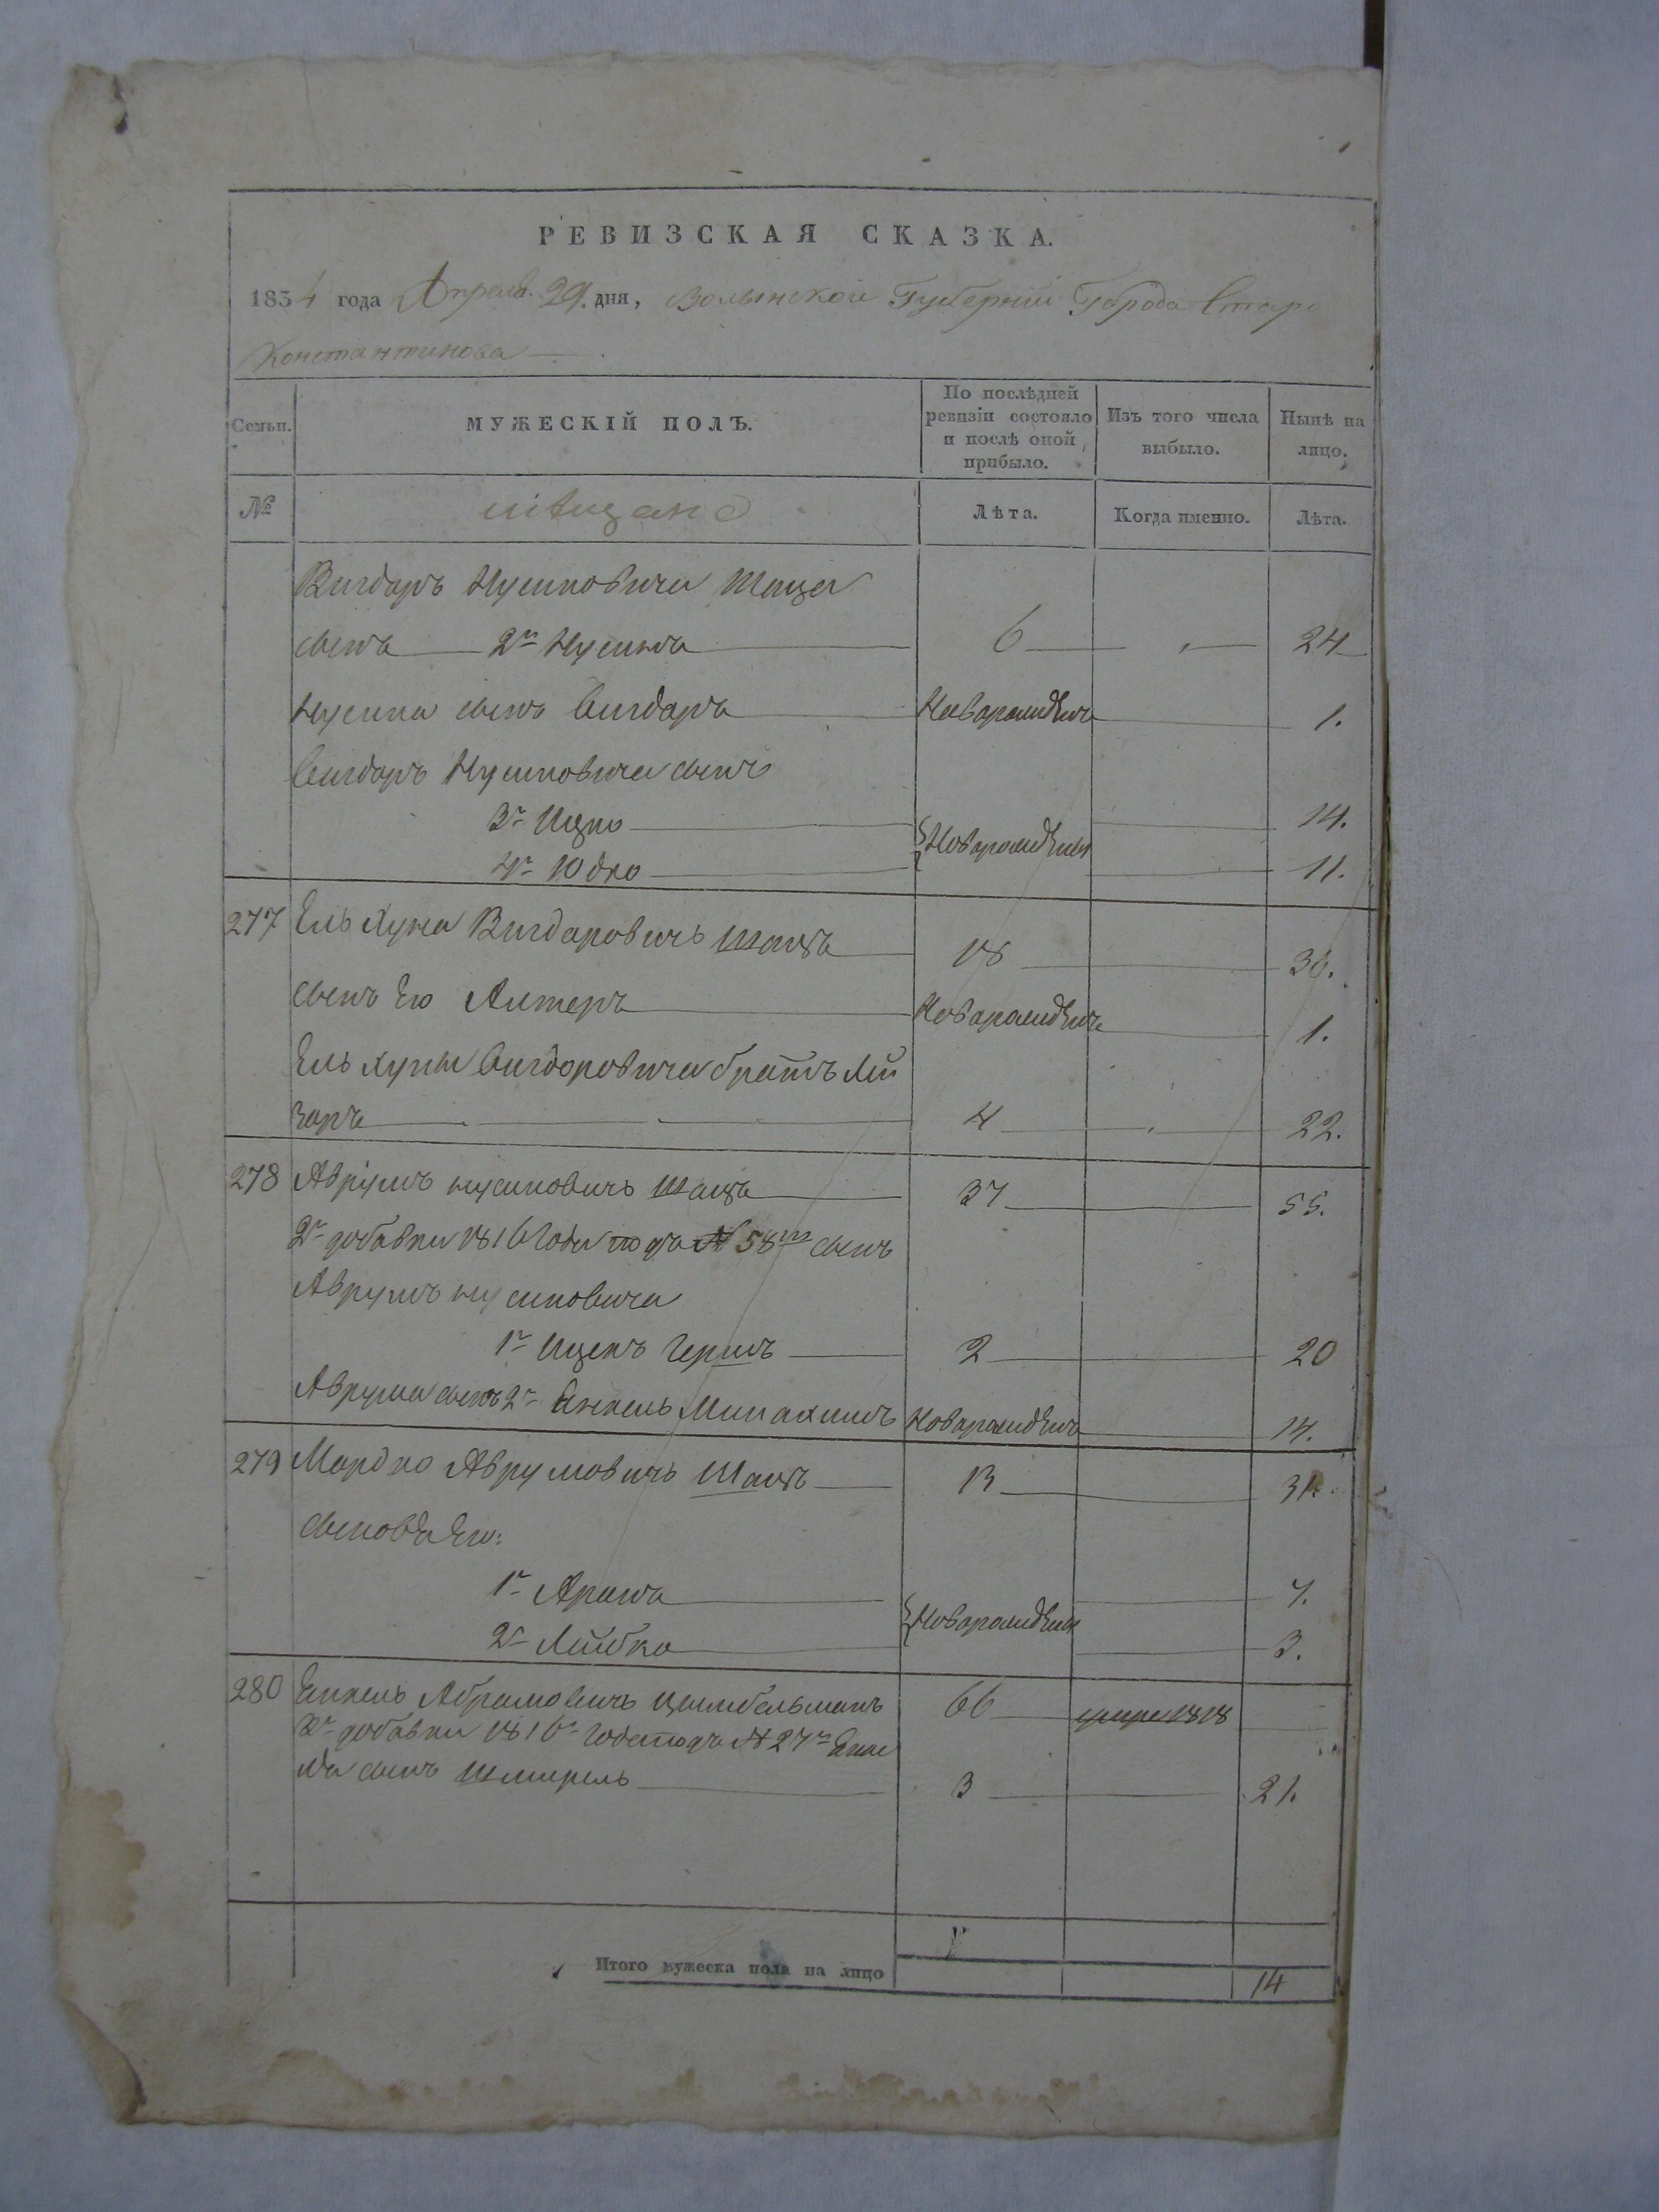 РЕВИЗСКАЯ СКАЗКА.
1834 года Апреля 29. дня, Волынской Губерніи Города Старо
Константинова
Семьи.
МУЖЕСКІЙ ПОЛЪ.
По послѣдней ревизіи состояло и послѣ оной прибыло.
Изъ того числа выбыло.
Нынѣ на лицо.
№
мѣщане
Лѣта.
Когда именно.
Лѣта.
Вигдоръ Нусиновича Шаца
сынъ 2й Нусинъ 6 24
Нусина сынъ Вигдоръ Новорожденъ 1.
Вигдоръ Нусиновича сынъ
3й Ицко 14.
4й Юдко Новорожденны 11.
277 Ель Хуна Вигдоровичь Шацъ 18 36.
сынъ Его Алтеръ Новорожденъ 1.
Ель Хуны Вигдоровича братъ Лей
заръ 4 22.
278 Аврумъ нусиновичь Шацъ 37 55.
2й добавки 1816 Года подъ № 58м сынъ
Аврумъ нусиновича
1й Ицекъ Гершъ 2 20
Аврума сынъ 2й Янкель Минахимъ Новорожденъ 14.
279 Мордко Аврумовичь Шацъ 13 31.
сыновья Его:
1й Аронъ 7.
2й Лейбко Новорожденны 3.
280 Янкель Абрамовичь Цымбельманъ 66 умре 1818
2й добавки 1816го Года подъ № 27м Янке
ля сынъ Шмирель 3 21.
Итого мужеска пола на лицо 14